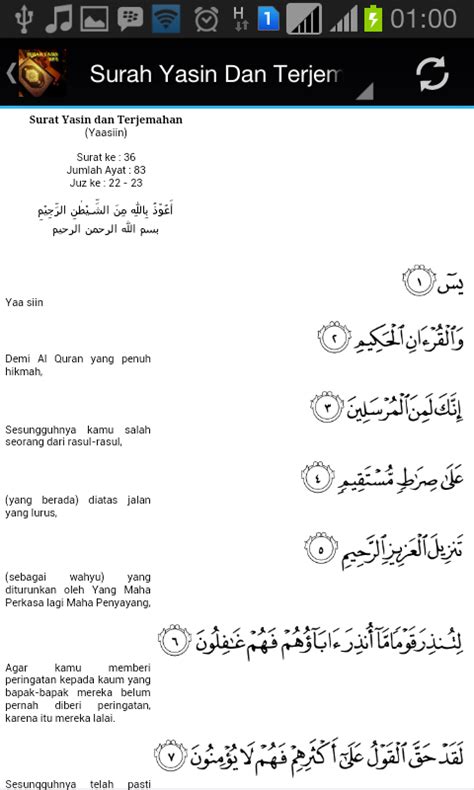 H
1
01:00
Surah Yasin Dan Terjem
Surat Yasin dan Terjemahan
(Yaasiin)
Surat ke : 36
Jumlah Ayat : 83
Juz ke : 22 - 23
أَعُوْذُ بِاللهِ مِنَ الشَّيْطٰنِ الرَّجِيْمِ
بسم الله الرحمن الرحيم
يسٓ ١
Yaa siin
وَٱلْقُرْءَانِ ٱلْحَكِيمِ ٢
Demi Al Quran yang penuh
hikmah,
إِنَّكَ لَمِنَ ٱلْمُرْسَلِينَ ٣
Sesungguhnya kamu salah
seorang dari rasul-rasul,
عَلَىٰ صِرَٰطٍ مُّسْتَقِيمٍ ٤
(yang berada) diatas jalan
yang lurus,
تَنزِيلَ ٱلْعَزِيزِ ٱلرَّحِيمِ ٥
(sebagai wahyu) yang
diturunkan oleh Yang Maha
Perkasa lagi Maha Penyayang,
لِتُنذِرَ قَوْمًا مَّآ أُنذِرَ ءَابَآؤُهُمْ فَهُمْ غَٰفِلُونَ ٦
Agar kamu memberi
peringatan kepada kaum yang
bapak-bapak mereka belum
pernah diberi peringatan,
karena itu mereka lalai.
لَقَدْ حَقَّ ٱلْقَوْلُ عَلَىٰٓ أَكْثَرِهِمْ فَهُمْ لَا يُؤْمِنُونَ ٧
Sesungguhnya telah pasti